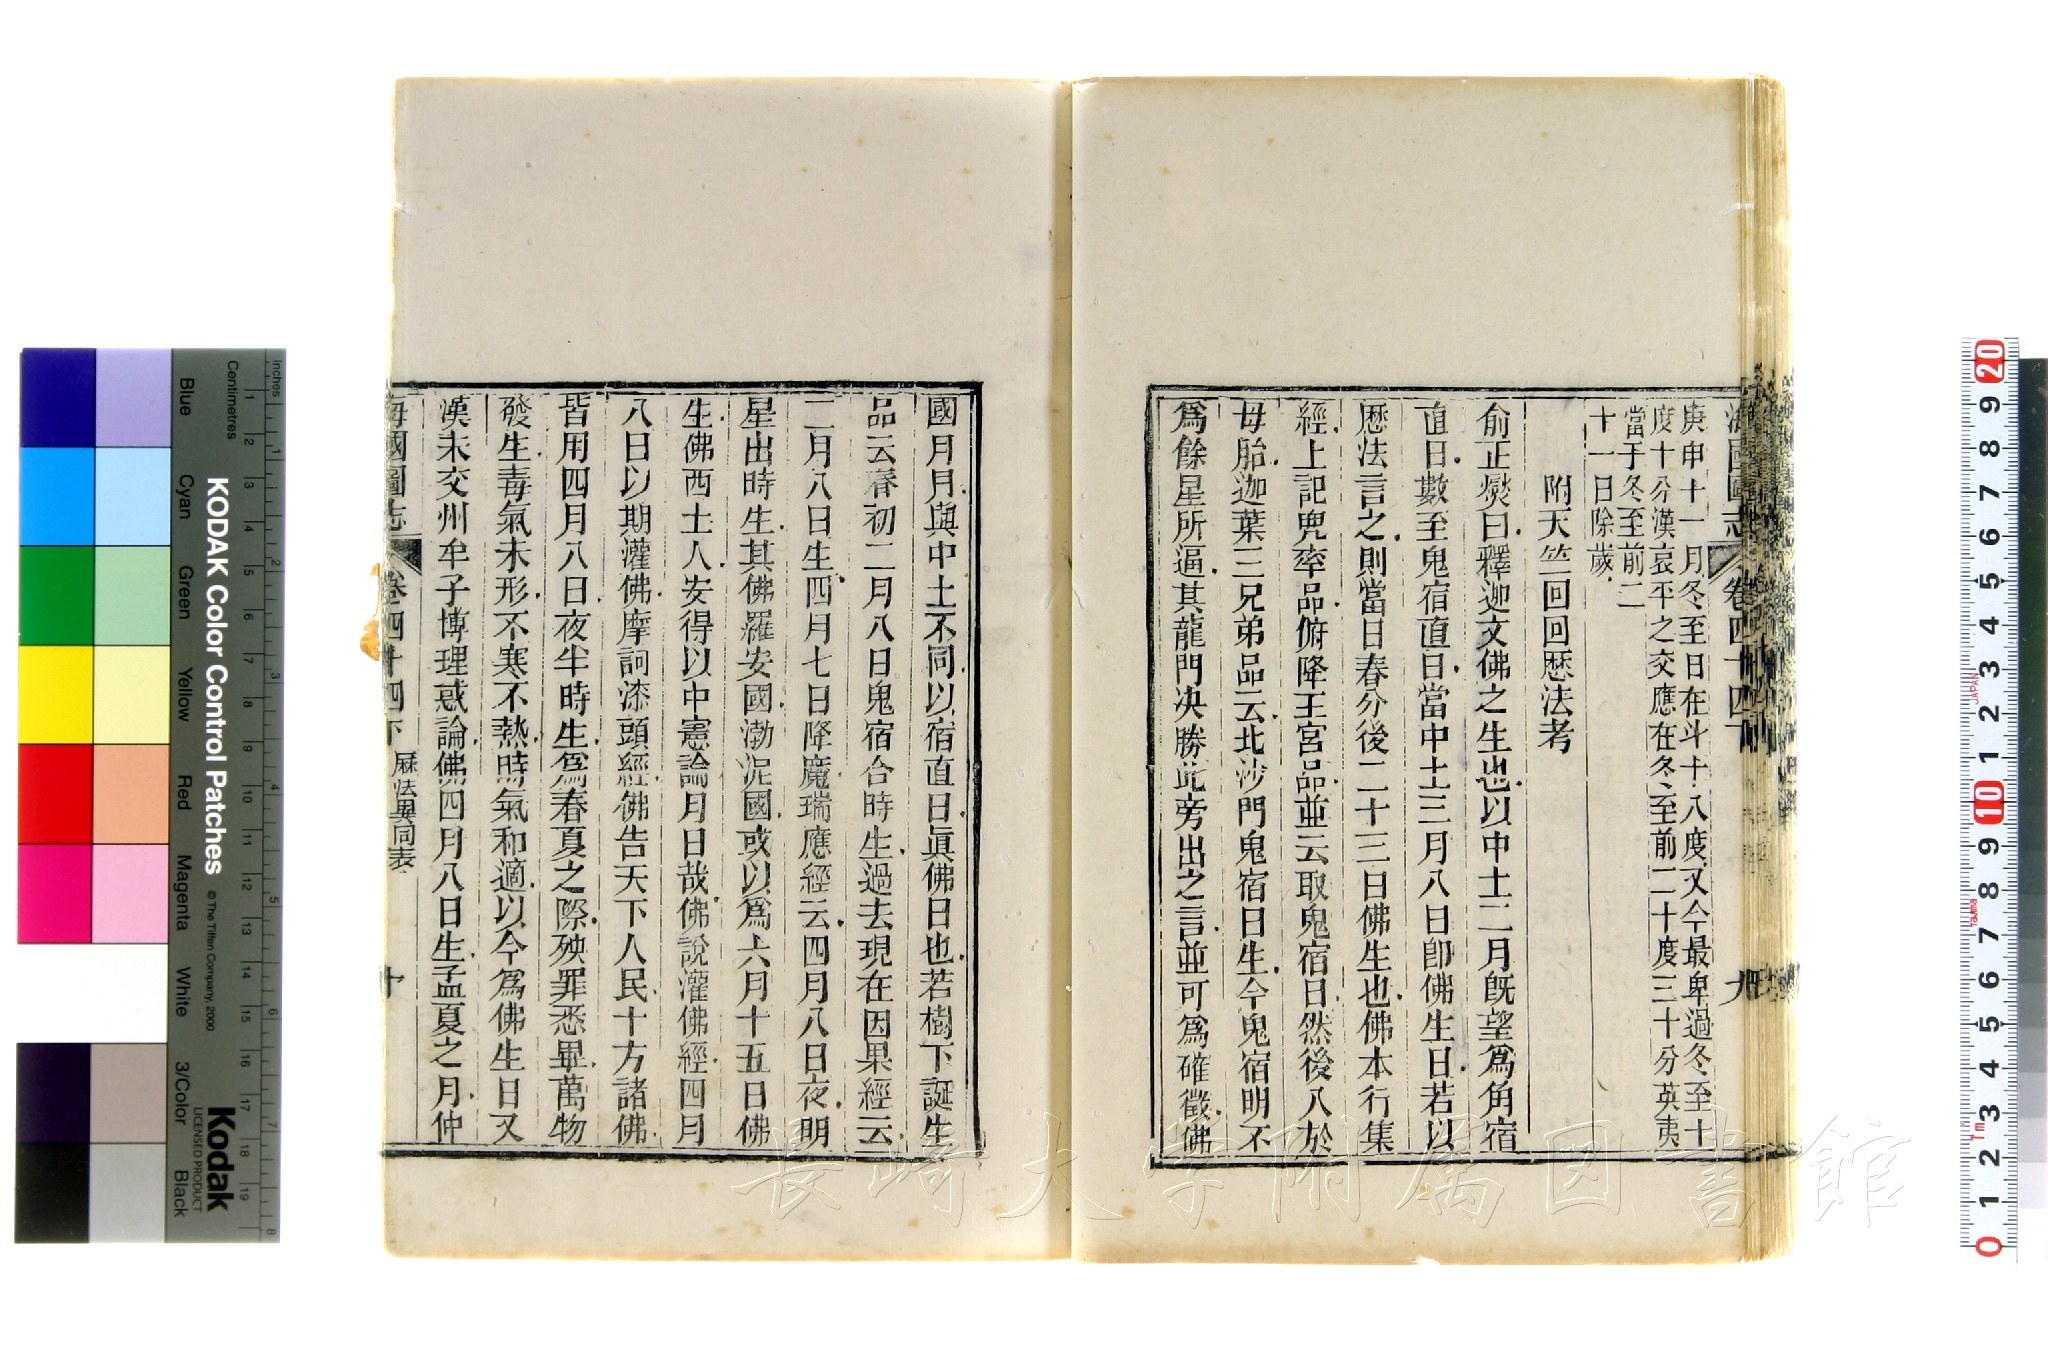 海國圖志 卷四十四下 九
庚申十一月冬至日在斗十八度又今最卑過冬至十
度十分漢哀平之交應在冬至前二十度三十分英夷
當于冬至前二
十一日除歲
附天竺回回歷法考
俞正燮曰釋迦文佛之生也以中土二月既望爲角宿
直日數至鬼宿直日當中土三月八日卽佛生日若以
歷法言之則當日春分後二十三日佛生也佛本行集
經上記兜率品俯降王宮品並云取鬼宿日然後入於
母胎迦葉三兄弟品云北沙門鬼宿日生今鬼宿明不
爲餘星所逼其龍門决勝此旁出之言並可爲確徵佛
國月月與中土不同以宿直日眞佛日也若樹下誕生
品云春初二月八日鬼宿合時生過去現在因果經云
二月八日生四月七日降魔瑞應經云四月八日夜明
星出時生其佛羅安國渤泥國或以爲六月十五日佛
生佛西土人安得以中憲論月日哉佛說灌佛經四月
八日以期灌佛摩訶漆頭經佛告天下人民十方諸佛
皆用四月八日夜半時生爲春夏之際殃罪悉畢萬物
發生毒氣未形不寒不熱時氣和適以今爲佛生日又
漢末交州牟子博理惑論佛四月八日生孟夏之月仲
海國圖志 卷四十四下 歷法異同表 十
長崎大学附属図書館
KODAK Color Control Patches
© The Tiffen Company, 2000
Kodak
LICENSED PRODUCT
Inches
Centimetres
Blue
Cyan
Green
Yellow
Red
Magenta
White
3/Color
Black
1 2 3 4 5 6 7 8
1 2 3 4 5 6 7 8 9 10 11 12 13 14 15 16 17 18 19
20 9 8 7 6 5 4 3 2 1 10 9 8 7 6 5 4 3 2 1 0
JAPAN